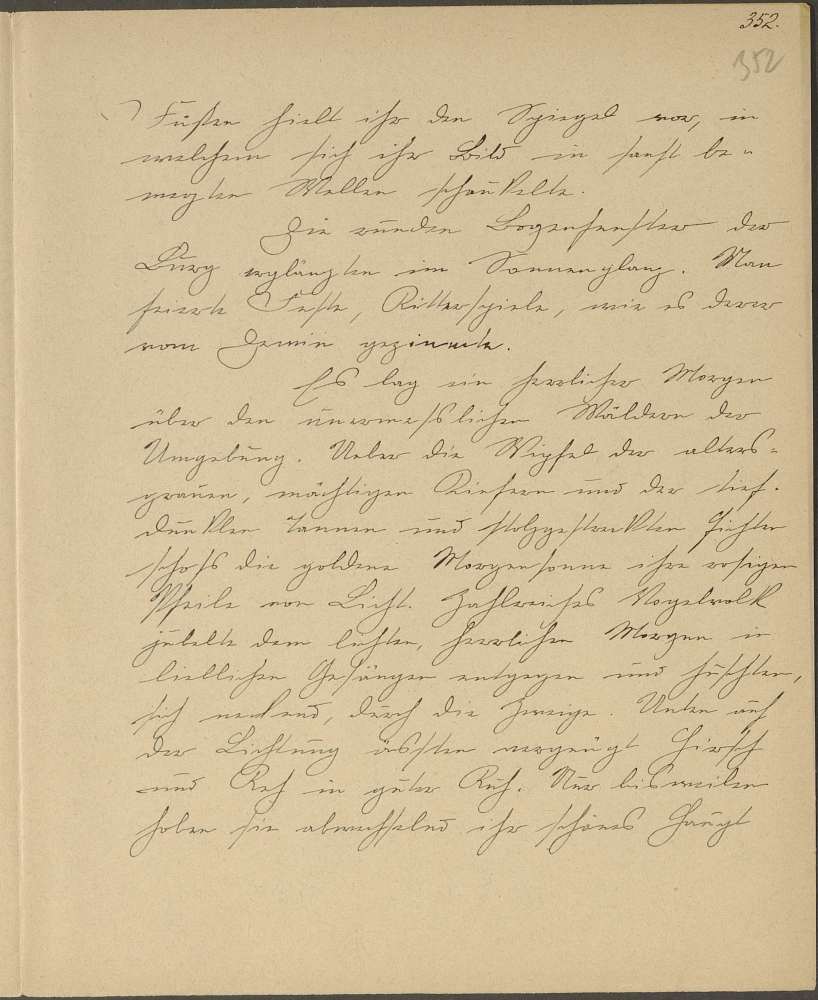 352.
352
Füßen hielt ihr den Spiegel vor, in
welchem sich ihr Bild in sanft be-
wegten Wellen schaukelte.
Die runden Bogenfenster der
Burg erglänzten im Sonnenglanz. Man
feierte Feste, Ritterspiele, wie es derer
vom gezimmte.
Es lag ein herrlicher Morgen
über den unermesslichen Wäldern der
Umgebung. Ueber die Wipfel der alters-
grauen, mächtigen Kiefern und der tief-
dunklen Tannen und stolzgestreckten Fichten
schoss die goldene Morgensonne ihre rosigen
Pfeile von Licht. Zahlreiches Vogelvolk
jubelte dem lichten, herrlichen Morgen in
lieblichen Gesängen entgegen und huschten,
sich neckend, durch die Zweige. Unten auf
der Lichtung ässten vergnügt Hirsch
und Reh in guter Ruh. Nur bisweilen
hoben sie abwechselnd ihr schönes Haupt